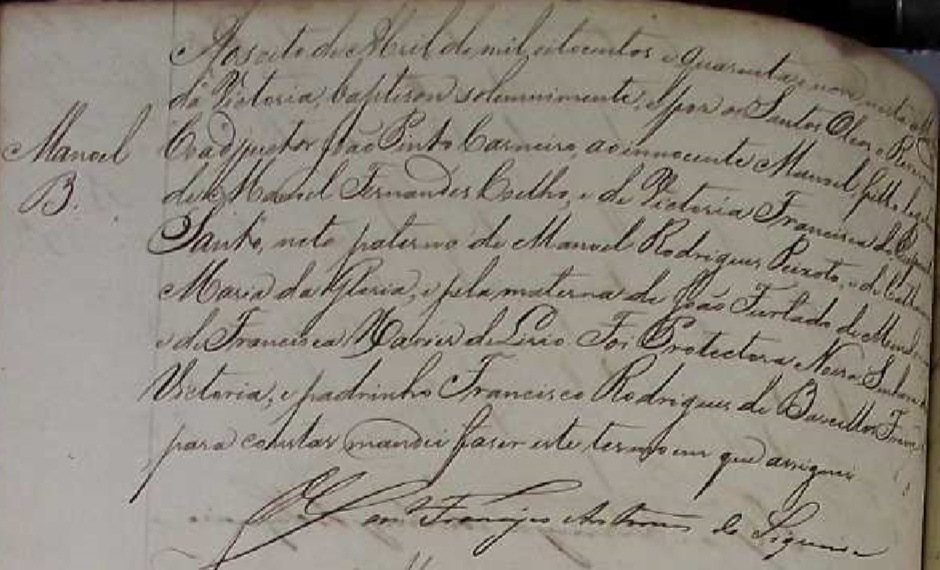 Aos oito de Abril de mil oitocentos e quarenta e nove nesta
da Victoria, baptisou solemnimente, e por os Santos Oleos, o
Manoel
Coadjuctor João Pinto Carneiro, ao innocente Manoel, filho
B.
de Manoel Fernandes Coelho, e de Victoria Francisca do
Santo, neto paterno de Manoel Rodrigues Peixoto, e de
Maria da Gloria, e pela materna de João Furtado de
e de Francisca Xavier de Lirio Foi Protectora Nossa Senhora
Victoria, e padrinho Francisco Rodrigues de Barcellos
para constar mandei faser este termo em que assignei